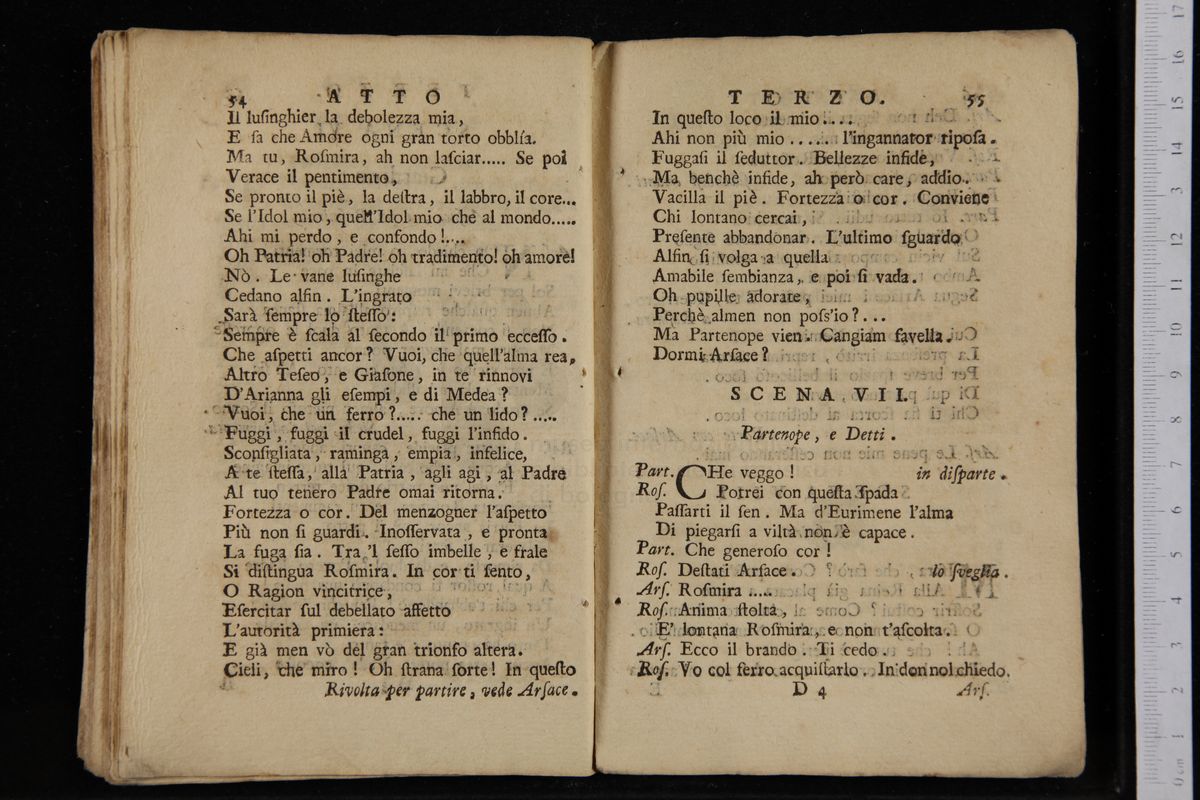 54 ATTO
Il luſinghier la debolezza mia,
E ſa che Amore ogni gran torto obblía.
Ma tu, Roſmira, ah non laſciar..... Se poi
Verace il pentimento,
Se pronto il piè, la deſtra, il labbro, il core...
Se l'Idol mio, quell'Idol mio che al mondo.....
Ahi mi perdo, e confondo!....
Oh Patria! oh Padre! oh tradimento! oh amore!
Nò. Le vane luſinghe
Cedano alfin. L'ingrato
Sarà ſempre lo ſteſſo:
Sempre è ſcala al ſecondo il primo ecceſſo.
Che aſpetti ancor? Vuoi, che quell'alma rea,
Altro Teſeo, e Giaſone, in te rinnovi
D'Arianna gli eſempi, e di Medea?
Vuoi, che un ferro?..... che un lido?.....
Fuggi, fuggi il crudel, fuggi l'infido.
Sconſigliata, raminga, empia, infelice,
A te ſteſſa, alla Patria, agli agi, al Padre
Al tuo tenero Padre omai ritorna.
Fortezza o cor. Del menzogner l'aſpetto
Più non ſi guardi. Inoſſervata, e pronta
La fuga ſia. Tra 'l ſeſſo imbelle, e frale
Si diſtingua Roſmira. In cor ti ſento,
O Ragion vincitrice,
Eſercitar ſul debellato affetto
L'autorità primiera:
E già men vò del gran trionfo altera.
Cieli, che miro! Oh ſtrana ſorte! In queſto
Rivolta per partire, vede Arſace.
TERZO. 55
In queſto loco il mio....
Ahi non più mio ..... l'ingannator ripoſa.
Fuggaſi il ſeduttor. Bellezze infide,
Ma benchè infide, ah però care, addio.
Vacilla il piè. Fortezza o cor. Conviene
Chi lontano cercai,
Preſente abbandonar. L'ultimo ſguardo
Alfin ſi volga a quella
Amabile ſembianza, e poi ſi vada.
Oh pupille adorate,
Perchè almen non poſs'io?...
Ma Partenope vien. Cangiam favella.
Dormi Arſace?
SCENA VII.
Partenope, e Detti.
Part. CHe veggo! in diſparte.
Roſ. Potrei con queſta ſpada
Paſſarti il ſen. Ma d'Eurimene l'alma
Di piegarſi a viltà non è capace.
Part. Che generoſo cor!
Roſ. Deſtati Arſace. lo ſveglia.
Arſ. Roſmira ....
Roſ. Anima ſtolta,
E' lontana Roſmira, e non t'aſcolta.
Arſ. Ecco il brando. Ti cedo.
Roſ. Vo col ferro acquiſtarlo. In don nol chiedo.
D 4 Arſ.